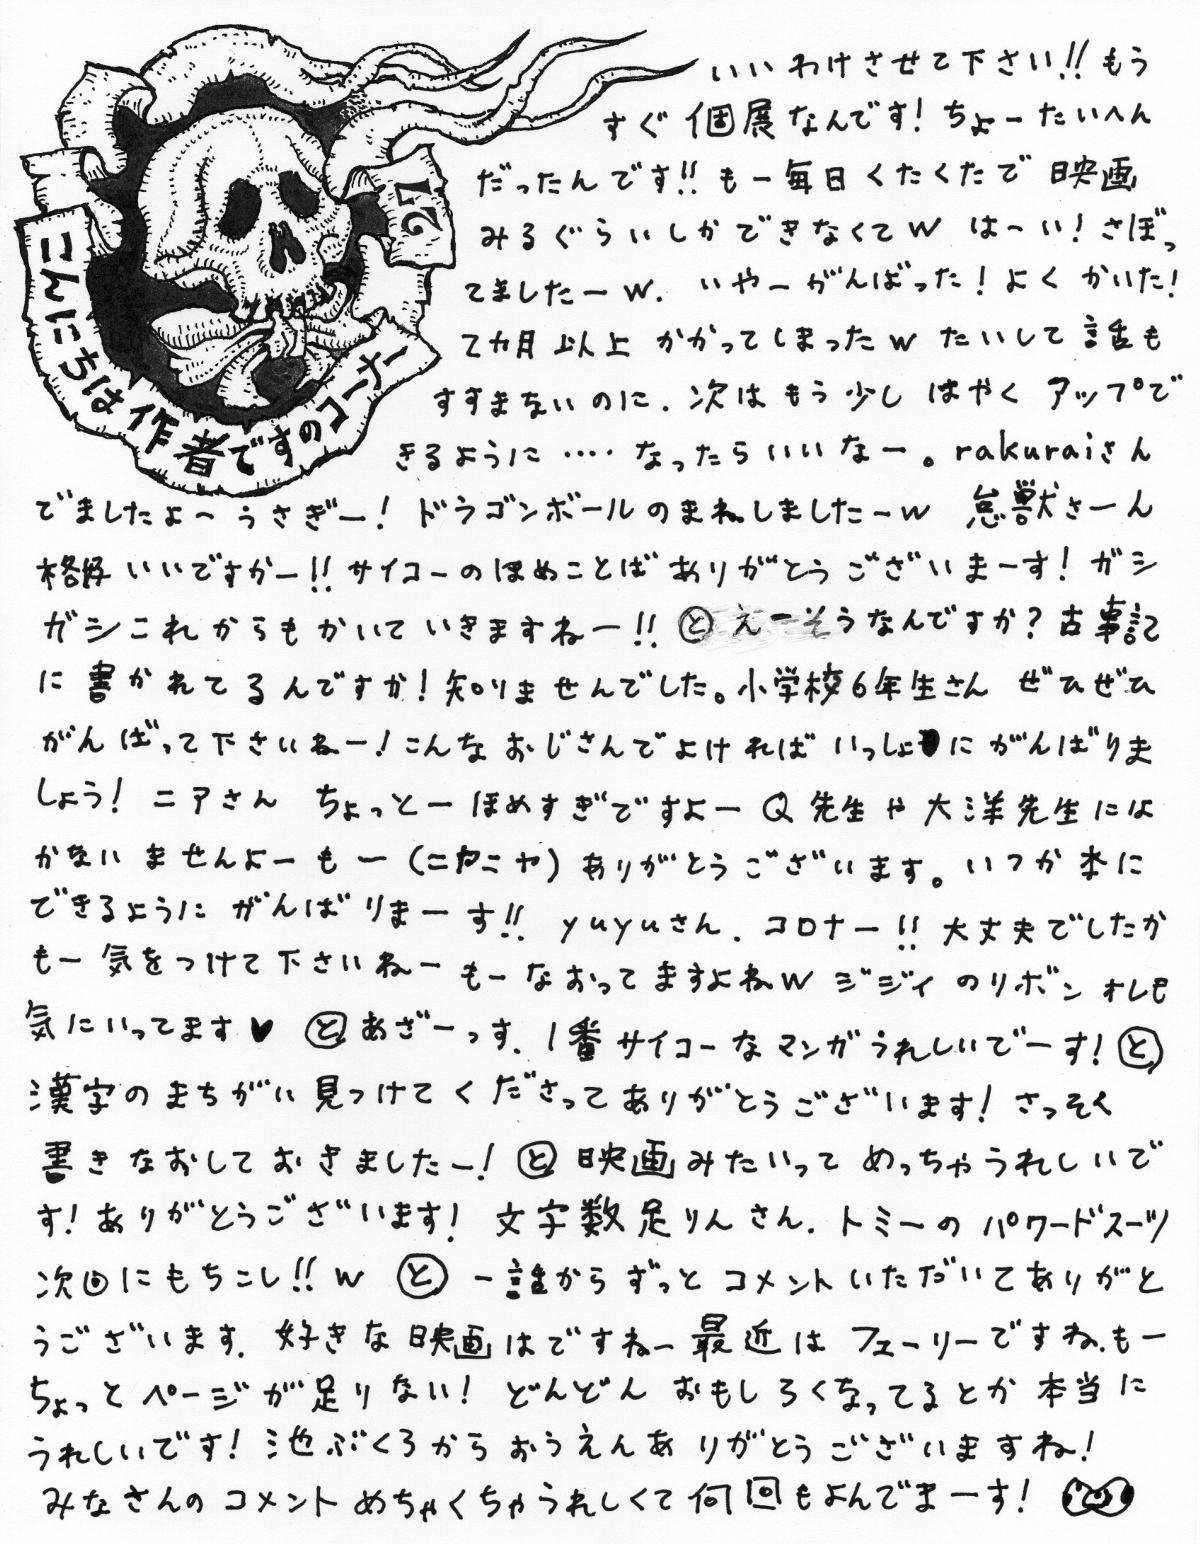 こんにちは作者ですのコーナー
27
いいわけさせて下さい!!もう
すぐ個展なんです!ちょーたいへん
だったんです!!もー毎日くたくたで映画
みるぐらいしかできなくてwは〜い!さぼっ
てましたーw.いやーがんばった!よくかいた!
2カ月以上かかってしまったwたいして話も
すすまないのに.次はもう少しはやくアップで
きるように‥‥なったらいいなー。rakuraiさん
でましたよ〜うさぎー!ドラゴンボールのまねしましたーw 怠獣さーん
格好いいですかー!!サイコーのほめことばありがとうございまーす!ガシ
ガシこれからもかいていきますねー!!㋣えーそうなんですか?古事記
に書かれてるんですか!知りませんでした。小学校6年生さん ぜひぜひ
がんばって下さいねー!こんなおじさんでよければいっしょにがんばりま
しょう!ニアさん ちょっとーほめすぎですよーQ先生や大洋先生には
かないませんよーもー(ニヤニヤ)ありがとうございます。いつか本に
できるようにがんばりまーす!! yuyuさん.コロナー!!大丈夫でしたか
もー気をつけて下さいねーもーなおってますよねwジジイのリボンオレも
気にいってます♥ ㋣あざーっす.1番サイコーなマンガうれしいでーす!㋣
漢字のまちがい見つけてくださってありがとうございます!さっそく
書きなおしておきましたー!㋣映画みたいってめっちゃうれしいで
す!ありがとうございます!文字数足りんさん.トミーのパワードスーツ
次回にもちこし!!w ㋣一話からずっとコメントいただいてありがと
うございます.好きな映画はですねー最近はフェーリーですね.もー
ちょっとページが足りない!どんどんおもしろくなってるとか本当に
うれしいです!池ぶくろからおうえんありがとうございますね!
みなさんのコメントめちゃくちゃうれしくて何回もよんでまーす!